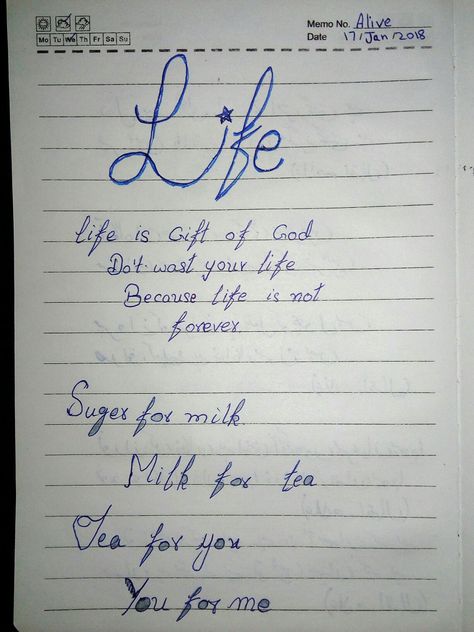 Memo No. Alive
Mo Tu We Th Fr Sa Su
Date 17/Jan/2018
Life
Life is Gift of God
Do't wast your life
Because life is not
forever
Suger for milk
Milk for tea
Tea for you
You for me